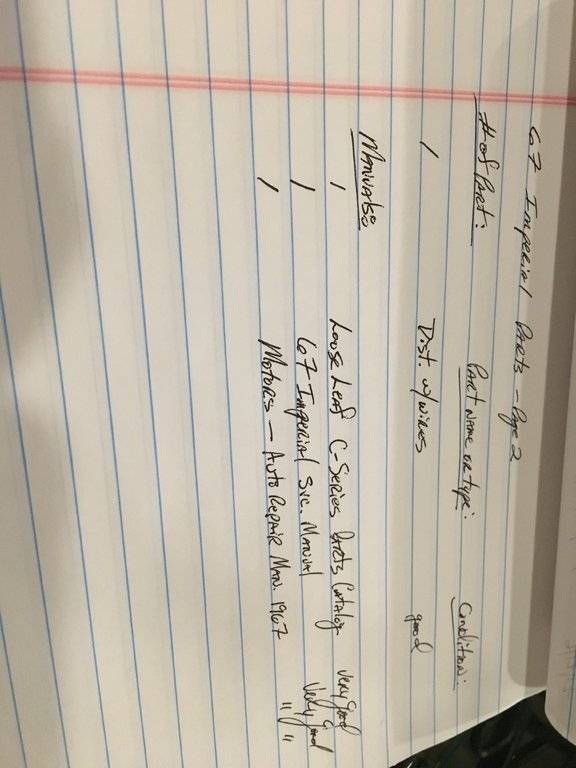 67 Imperial Parts - Page 2
# of Part: Part Name or Type: Condition:
1 Dist. w/wires good
Manuals:
1 Loose Leaf C-Series Parts Catalog very good
1 67 Imperial Svc. Manual very good
1 Motors — Auto Repair Man. 1967 " "